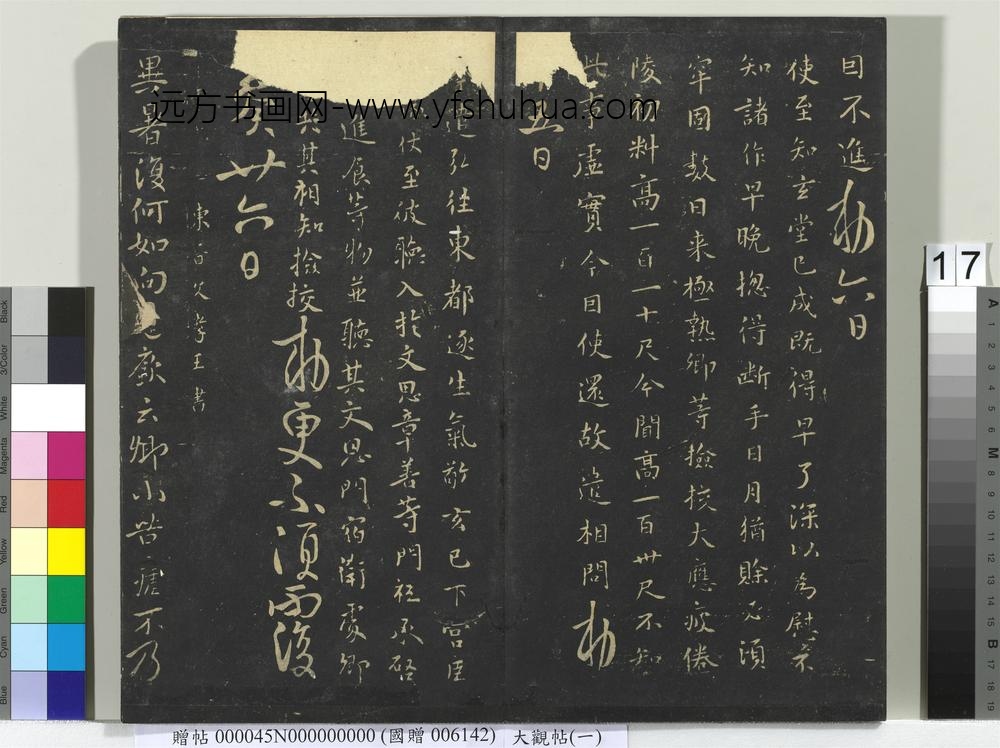 目不進 勅 六日
使至知玄堂已成既得早了深以為慰不
知諸作早晚揔得斷手日月猶賒必須
牢固數日来極熱卿等撿挍大應疲倦
陵初料高一百一十尺今聞高一百卅尺不知
此事虛實今日使還故遣相問 勅
五日
遣弘往東都逐生氣敬玄已下宮臣
仗至彼聽入於文思章善等門祗承啓
進食等物並聽其文思門宿衛處卿
其相知撿挍 勅更不須覆
卅六日
陳 王書
異暑復何如向 廢云卿小苦瘧不乃
远方书画网-www.yfshuhua.com
17
Black
3/Color
White
Magenta
Red
Yellow
Green
Cyan
Blue
A 1 2 3 4 5 6 M 8 9 10 11 12 13 14 15 B 17 18 19
贈帖 000045N000000000 (國贈 006142) 大觀帖(一)